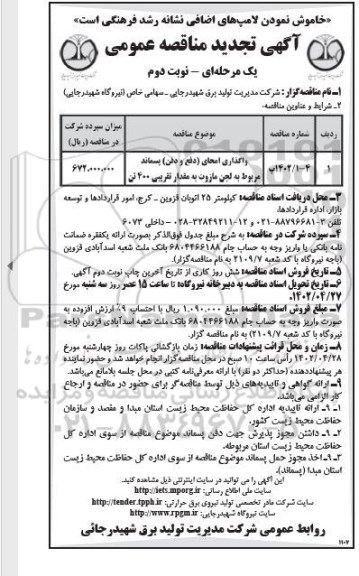 «خاموش نمودن لامپ‌های اضافی نشانه رشد فرهنگی است»
آگهی تجدید مناقصه عمومی
یک مرحله‌ای – نوبت دوم
۱ـ نام مناقصه‌گزار: شرکت مدیریت تولید برق شهیدرجایی ـ سهامی خاص (نیروگاه شهیدرجایی)
۲ـ شرایط و عناوین مناقصه:
ردیف شماره مناقصه موضوع مناقصه میزان سپرده شرکت در مناقصه (ریال)
۱ ۱۴۰۲/۱-۴پ واگذاری امحای (دفع و دفن) پسماند مربوط به لجن مازوت به مقدار تقریبی ۴۰۰ تن ۶۷۲.۰۰۰.۰۰۰
۳ـ محل دریافت اسناد مناقصه: کیلومتر ۲۵ اتوبان قزوین ـ کرج، امور قراردادها و توسعه
بازار، اداره قراردادها.
تلفن: ۳-۸۸۷۹۶۶۸۱-۰۲۱ و ۱۲-۳۲۸۴۹۲۱۱-۰۲۸ – داخلی ۶۰۷۳
۴ـ سپرده شرکت در مناقصه: به شرح مبلغ جدول فوق‌الذکر بصورت ارائه یکفقره ضمانت
نامه بانکی یا واریز وجه به حساب جام ۶۸۰۴۴۶۶۱۸۸ بانک ملت شعبه اسدآبادی قزوین
(باجه نیروگاه با کد شعبه ۲۱۰۹/۷ به نام مناقصه‌گزار).
۵ـ تاریخ فروش اسناد مناقصه: شش روز کاری از تاریخ آخرین چاپ نوبت دوم آگهی.
۶ـ تاریخ تحویل اسناد مناقصه به دبیرخانه نیروگاه: تا ساعت ۱۵ عصر روز سه شنبه مورخ
۱۴۰۲/۰۴/۲۷.
۷ـ مبلغ فروش اسناد مناقصه: مبلغ ۱.۰۹۰.۰۰۰ ریال با احتساب ۹٪ ارزش افزوده به
صورت واریز وجه به حساب جام ۶۸۰۴۴۶۶۱۸۸ بانک ملت شعبه اسدآبادی قزوین (باجه
نیروگاه با کد شعبه ۲۱۰۹/۷) به نام مناقصه گزار.
۸ـ زمان و محل قرائت پیشنهادات مناقصه: زمان بازگشائی پاکات روز چهارشنبه مورخ
۱۴۰۲/۰۴/۲۸ رأس ساعت ۱۰ صبح در محل مناقصه گزار انجام خواهد شد و حضور نماینده
هر پیشنهاددهنده (حداکثر دو نفر) با ارائه معرفی‌نامه کتبی در محل جلسه بلامانع می‌باشد.
۹ـ ارائه گواهی و تاییدیه‌های ذیل توسط مناقصه‌گر برای حضور در مناقصه و ارجاع
کار الزامی می‌باشد.
۱ـ۹ـ ارائه تاییدیه اداره کل حفاظت محیط زیست استان مبدا و مقصد و سازمان
حفاظت محیط زیست کشور.
۲ـ۹ـ داشتن مجوز پذیرش جهت دفن پسماند موضوع مناقصه از سوی اداره کل
حفاظت محیط زیست استان مربوطه.
۳ـ۹ـ اخذ مجوز حمل پسماند موضوع مناقصه از سوی اداره کل حفاظت محیط زیست
استان مبدا (پسماند).
این آگهی را می توانید در سایت اینترنتی ذیل مشاهده کنید.
سایت ملی اطلاع رسانی: http://iets.mporg.ir
سایت شرکت مادر تخصصی تولید نیروی برق حرارتی: http://tender.tpph.ir
سایت نیروگاه شهیدرجایی: http://www.rpgm.ir
روابط عمومی شرکت مدیریت تولید برق شهیدرجائی
۱۱۰۲